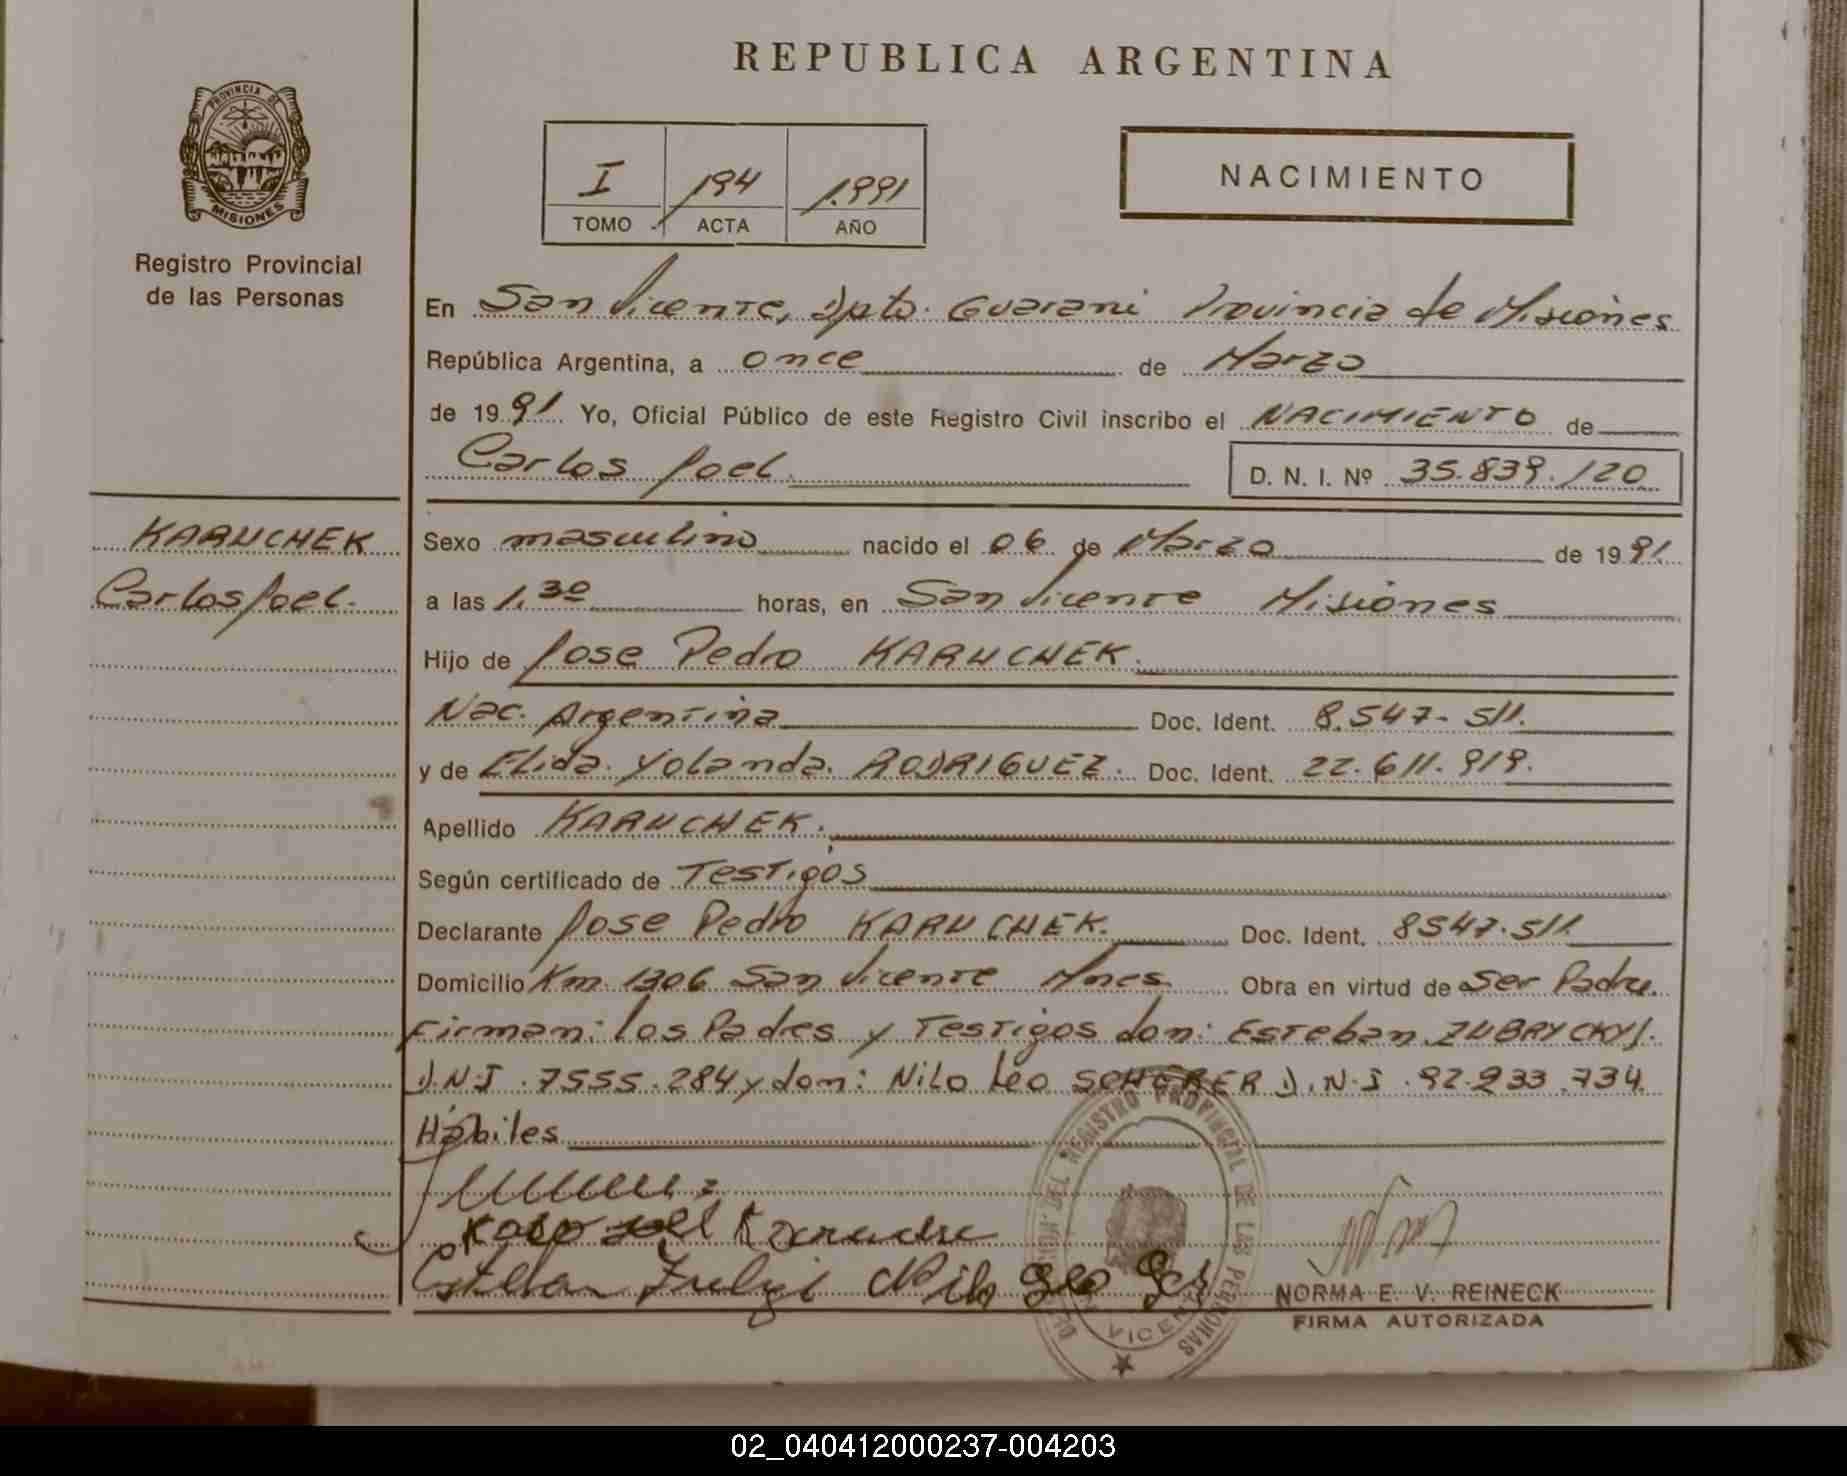 REPUBLICA ARGENTINA
PROVINCIA DE
MISIONES
Registro Provincial
de las Personas
I 194 1.991
TOMO ACTA AÑO
NACIMIENTO
En San Vicente, Dpto. Guarani Provincia de Misiones
República Argentina, a once de Marzo
de 1991 Yo, Oficial Público de este Registro Civil inscribo el NACIMIENTO de
Carlos Joel
D. N. I. Nº 35.839.120
KARUCHEK
Carlos Joel.
Sexo masculino nacido el 06 de Marzo de 1991.
a las 1.30 horas, en San Vicente Misiones
Hijo de Jose Pedro KARUCHEK.
Nac. Argentina Doc. Ident. 8.547-511.
y de Elida Yolanda RODRIGUEZ. Doc. Ident. 22.611.919.
Apellido KARUCHEK.
Según certificado de Testigos
Declarante Jose Pedro KARUCHEK. Doc. Ident. 8547.511
Domicilio Km 1306 San Vicente Mnes. Obra en virtud de Ser Padre.
Firman: los Padres y Testigos don: Esteban ZUBRYCKYJ.
D.N.I. 7555.284 y don: Nilo Leo SCHORER D.N.I. 92.933.734
Hábiles
DEL REGISTRO PROVINCIAL DE LAS PERSONAS
VICENTE
NORMA E. V. REINECK
FIRMA AUTORIZADA
02_040412000237-004203